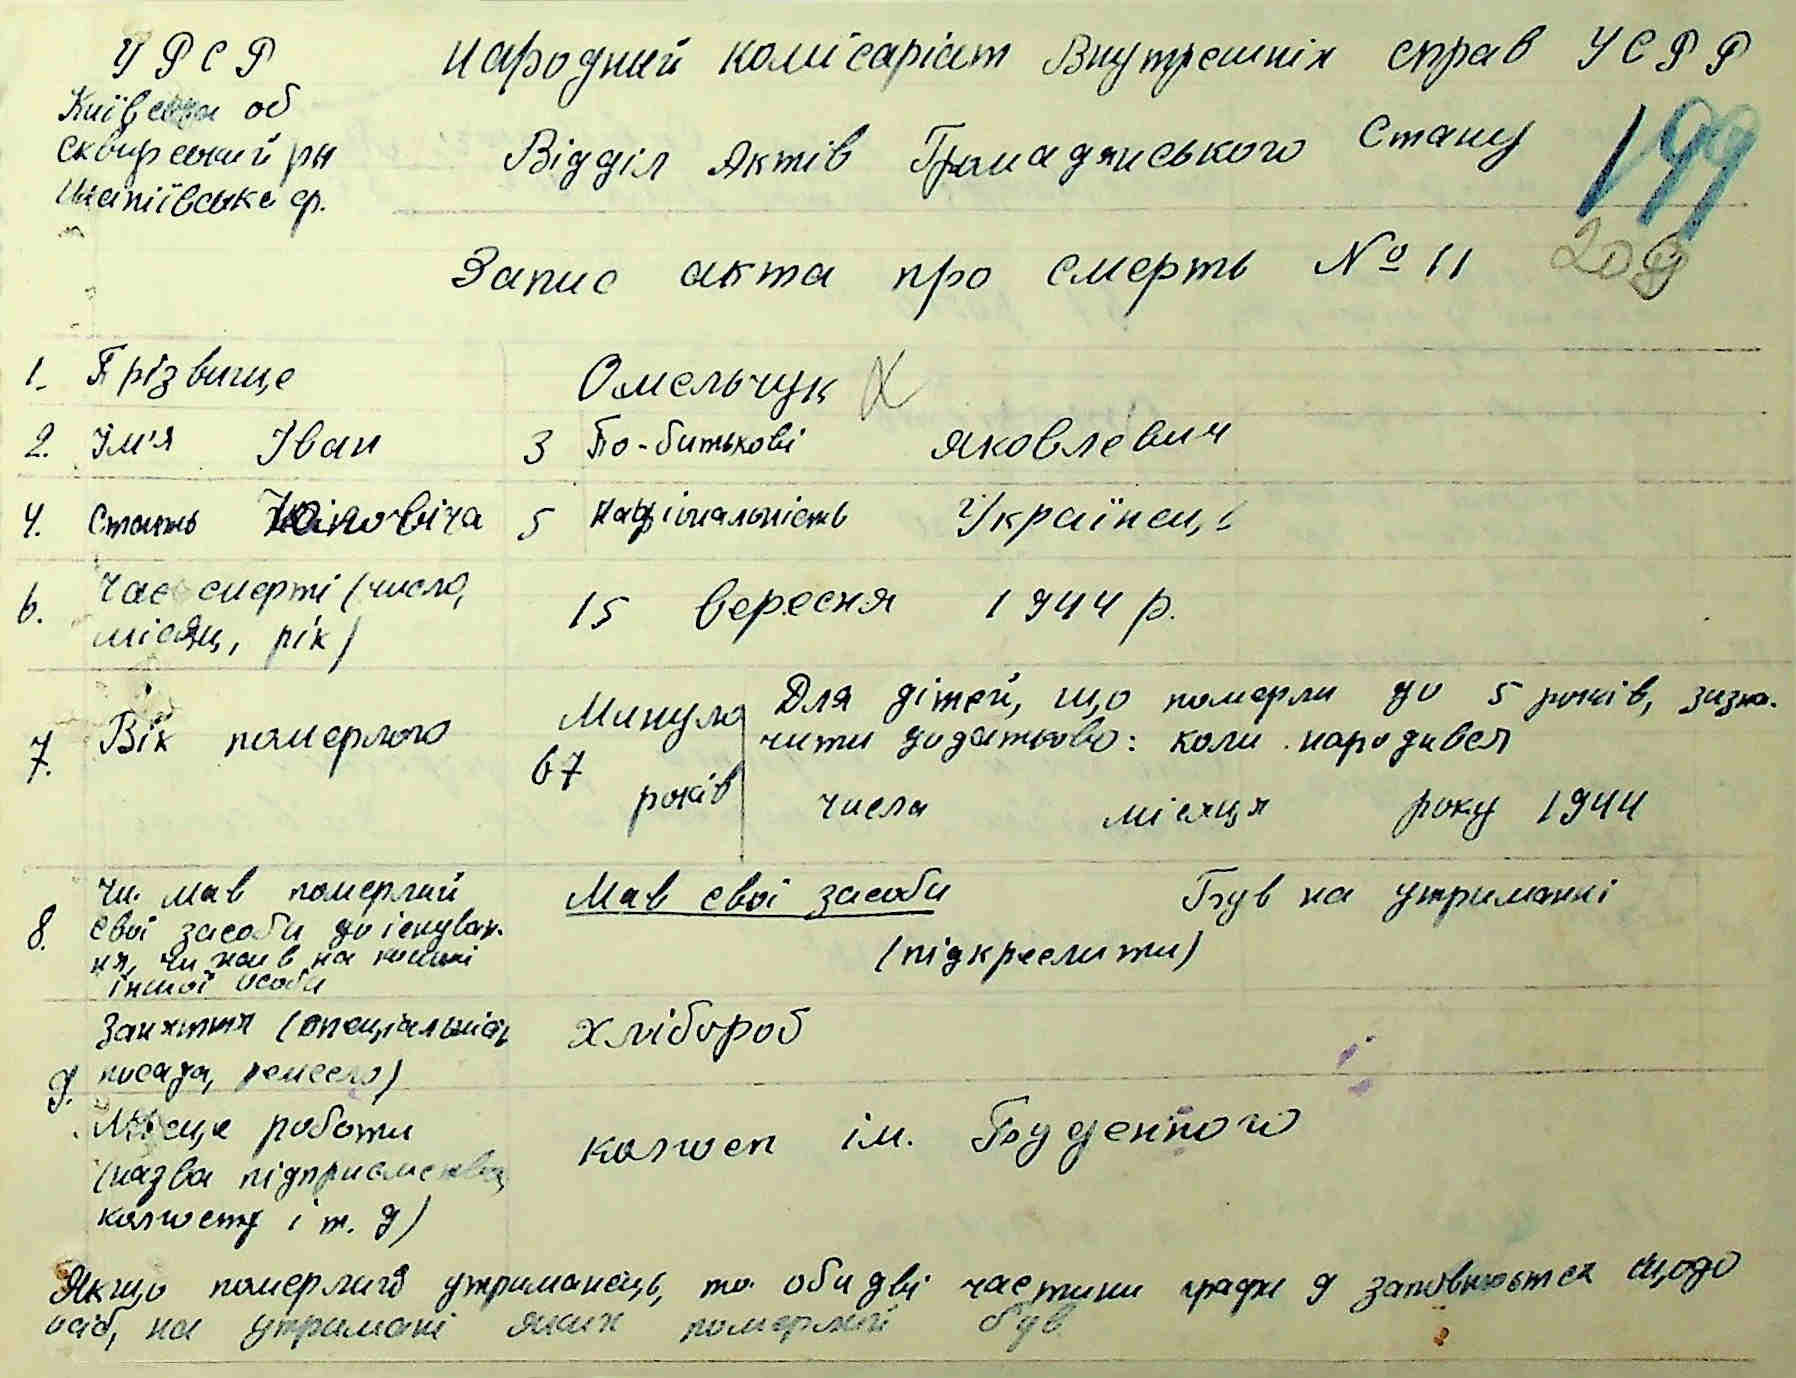 УРСР
Народний комісаріат Внутрешніх справ УСРР
Київська об
Сквирський рн
Шапіївська ср.
Відділ Актів Громадянського Стану
199
Запис акта про смерть № 11
209
1. Прізвище Омельчук
2. Ім'я Іван 3 По-битькові Яковлевич
4. Стать Чоловіча 5 Національність Українець
6. Час смерті (число, місяць, рік) 15 вересня 1944 р.
7. Вік померлого Минуло 67 років
Для дітей, що померли до 5 років, зазна-
чити додатково: коли народився
числа місяця року 1944
8. Чи мав померлий
свої засоби до існуван-
ня, чи жив на кошті
іншої особи
Мав свої засоби Був на утриманні
(підкреслити)
9. Заняття (спеціальність
посада, ремесло)
Хлібороб
Місце роботи
(назва підприємства,
колгоспу і т. д)
колгосп ім. Буденного
Якщо померлий утриманець, то обидві частини графи 9 заповнюється щодо
осіб, на утримані яких померлий був